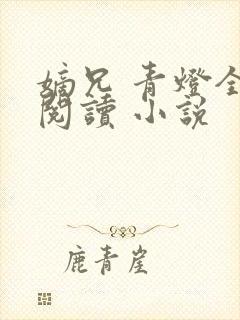 嫡兄 青燈全
閱讀 小說
鹿青崖